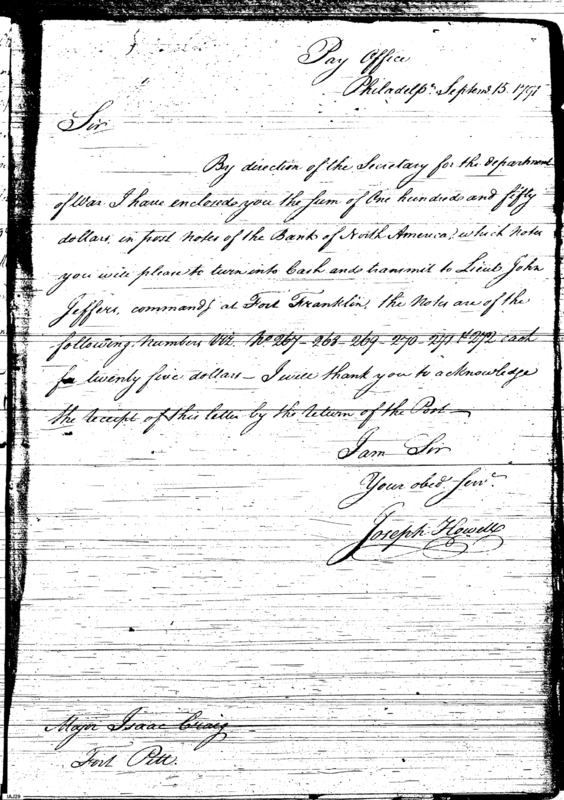 Pay Office
Philadelpa. Septemb 15. 1791
Sir
By direction of the Secretary for the department
of War I have enclosed you the sum of One hundred and fifty
dollars, in post notes of the Bank of North America, which notes
you will please to turn into Cash and transmit to Lieut John
Jeffers, commandg at Fort Franklin, the Notes are of the
following Numbers Viz. No 267 - 268 - 269 - 270 - 271 & 272 each
for twenty five dollars - I will thank you to acknowledge
the receipt of this letter by the return of the Post -
I am Sir
Your obed. Servt.
Joseph Howell
Major Isaac Craig
Fort Pitt